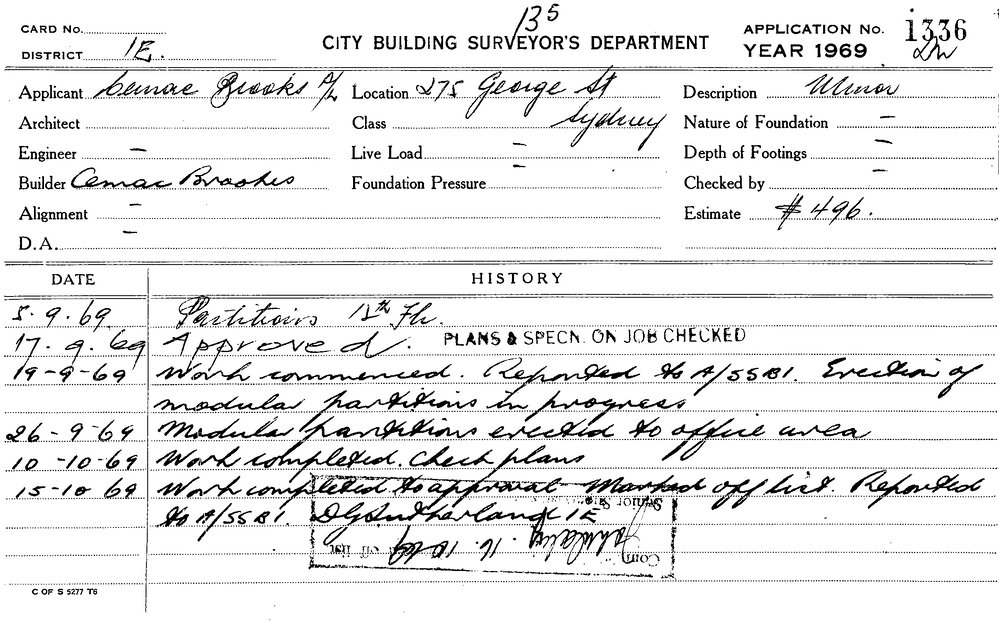 135
CARD No.
DISTRICT 1E.
CITY BUILDING SURVEYOR'S DEPARTMENT
APPLICATION No. 1336
YEAR 1969
Applicant Cemac Brooks P/L Location 275 George St Description Minor
Architect Class Sydney Nature of Foundation –
Engineer – Live Load – Depth of Footings –
Builder Cemac Brookes Foundation Pressure – Checked by –
Alignment – Estimate $ 496.
D.A. –
DATE HISTORY
5.9.69. Partitions 11th Flr.
17.9.69 Approved. PLANS & SPECN. ON JOB CHECKED
19-9-69 Work commenced. Reported to A/SSBI. Erection of
modular partitions in progress
26-9-69 Modular partitions erected to office area
10-10-69 Work completed. Check plans
15-10 69 Work completed to approval. Marked off list. Reported
to A/SSBI. DGSutherland 1E
16.10.69
C OF S 5277 T6